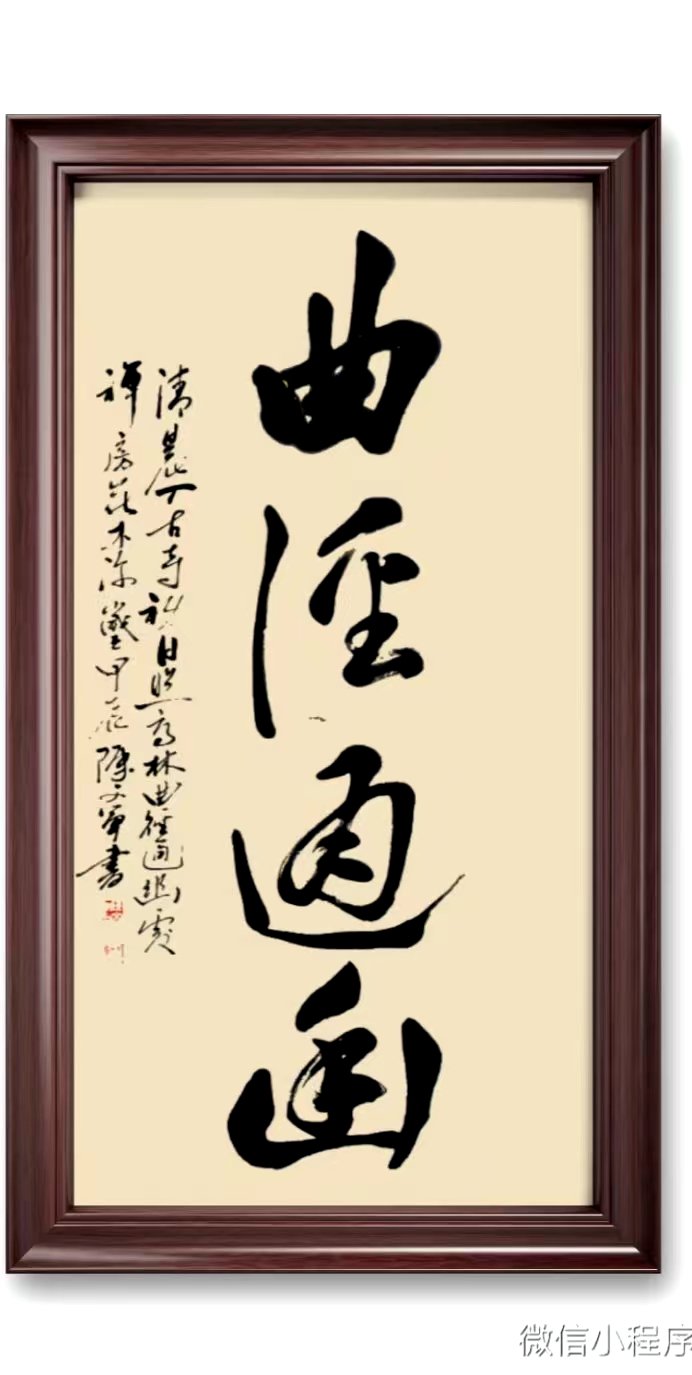 曲径通幽
清晨入古寺初日照高林曲徑通幽處
禅房花木深歲甲辰陳文軍書
微信小程序